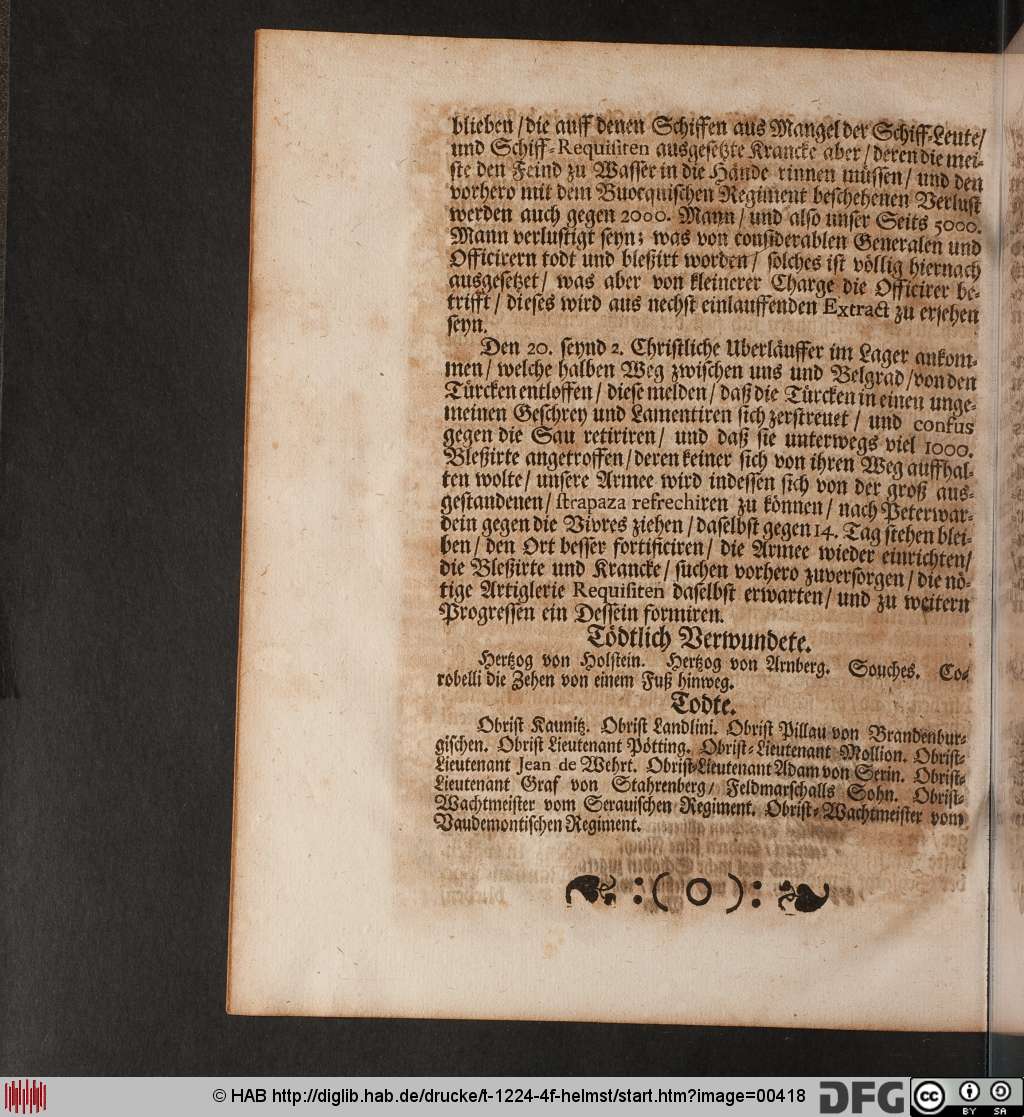 blieben / die auff denen Schiffen aus Mangel der Schiff-Leute /
und Schiff-Requisiten ausgesetzte Krancke aber / deren die mei-
ste den Feind zu Wasser in die Hände rinnen müssen / und den
vorhero mit dem Buocquischen Regiment beschehenen Verlust
werden auch gegen 2000. Mann / und also unser Seits 5000.
Mann verlustigt seyn; was von considerablen Generalen und
Officirern todt und bleßirt worden / solches ist völlig hiernach
ausgesetzet / was aber von kleinerer Charge die Officirer be-
trifft / dieses wird aus nechst einlauffenden Extract zu ersehen
seyn.
Den 20. seynd 2. Christliche Uberläuffer im Lager ankom-
men / welche halben Weg zwischen uns und Belgrad / von den
Türcken entloffen / diese melden / daß die Türcken in einen unge-
meinen Geschrey und Lamentiren sich zerstreuet / und confus
gegen die Sau retiriren / und daß sie unterwegs viel 1000.
Bleßirte angetroffen / deren keiner sich von ihren Weg auffhal-
ten wolte / unsere Armee wird indessen sich von der groß aus-
gestandenen / strapaza refrechiren zu können / nach Peterwar-
dein gegen die Vivres ziehen / daselbst gegen 14. Tag stehen blei-
ben / den Ort besser fortificiren / die Armee wieder einrichten /
die Bleßirte und Krancke / suchen vorhero zuversorgen / die nö-
tige Artiglerie Requisiten daselbst erwarten / und zu weitern
Progressen ein Dessein formiren.
Tödtlich Verwundete.
Hertzog von Holstein. Hertzog von Arnberg. Souches. Co-
robelli die Zehen von einem Fuß hinweg.
Todte.
Obrist Kaunitz. Obrist Landlini. Obrist Pillau von Brandenbur-
gischen. Obrist Lieutenant Pötting. Obrist-Lieutenant Mollion. Obrist-
Lieutenant Jean de Wehrt. Obrist-Lieutenant Adam von Serin. Obrist-
Lieutenant Graf von Stahrenberg / Feldmarschalls Sohn. Obrist-
Wachtmeister vom Serauischen Regiment. Obrist-Wachtmeister vom
Vaudemontischen Regiment.
:( O ):
© HAB http://diglib.hab.de/drucke/t-1224-4f-helmst/start.htm?image=00418
DFG
cc
BY SA